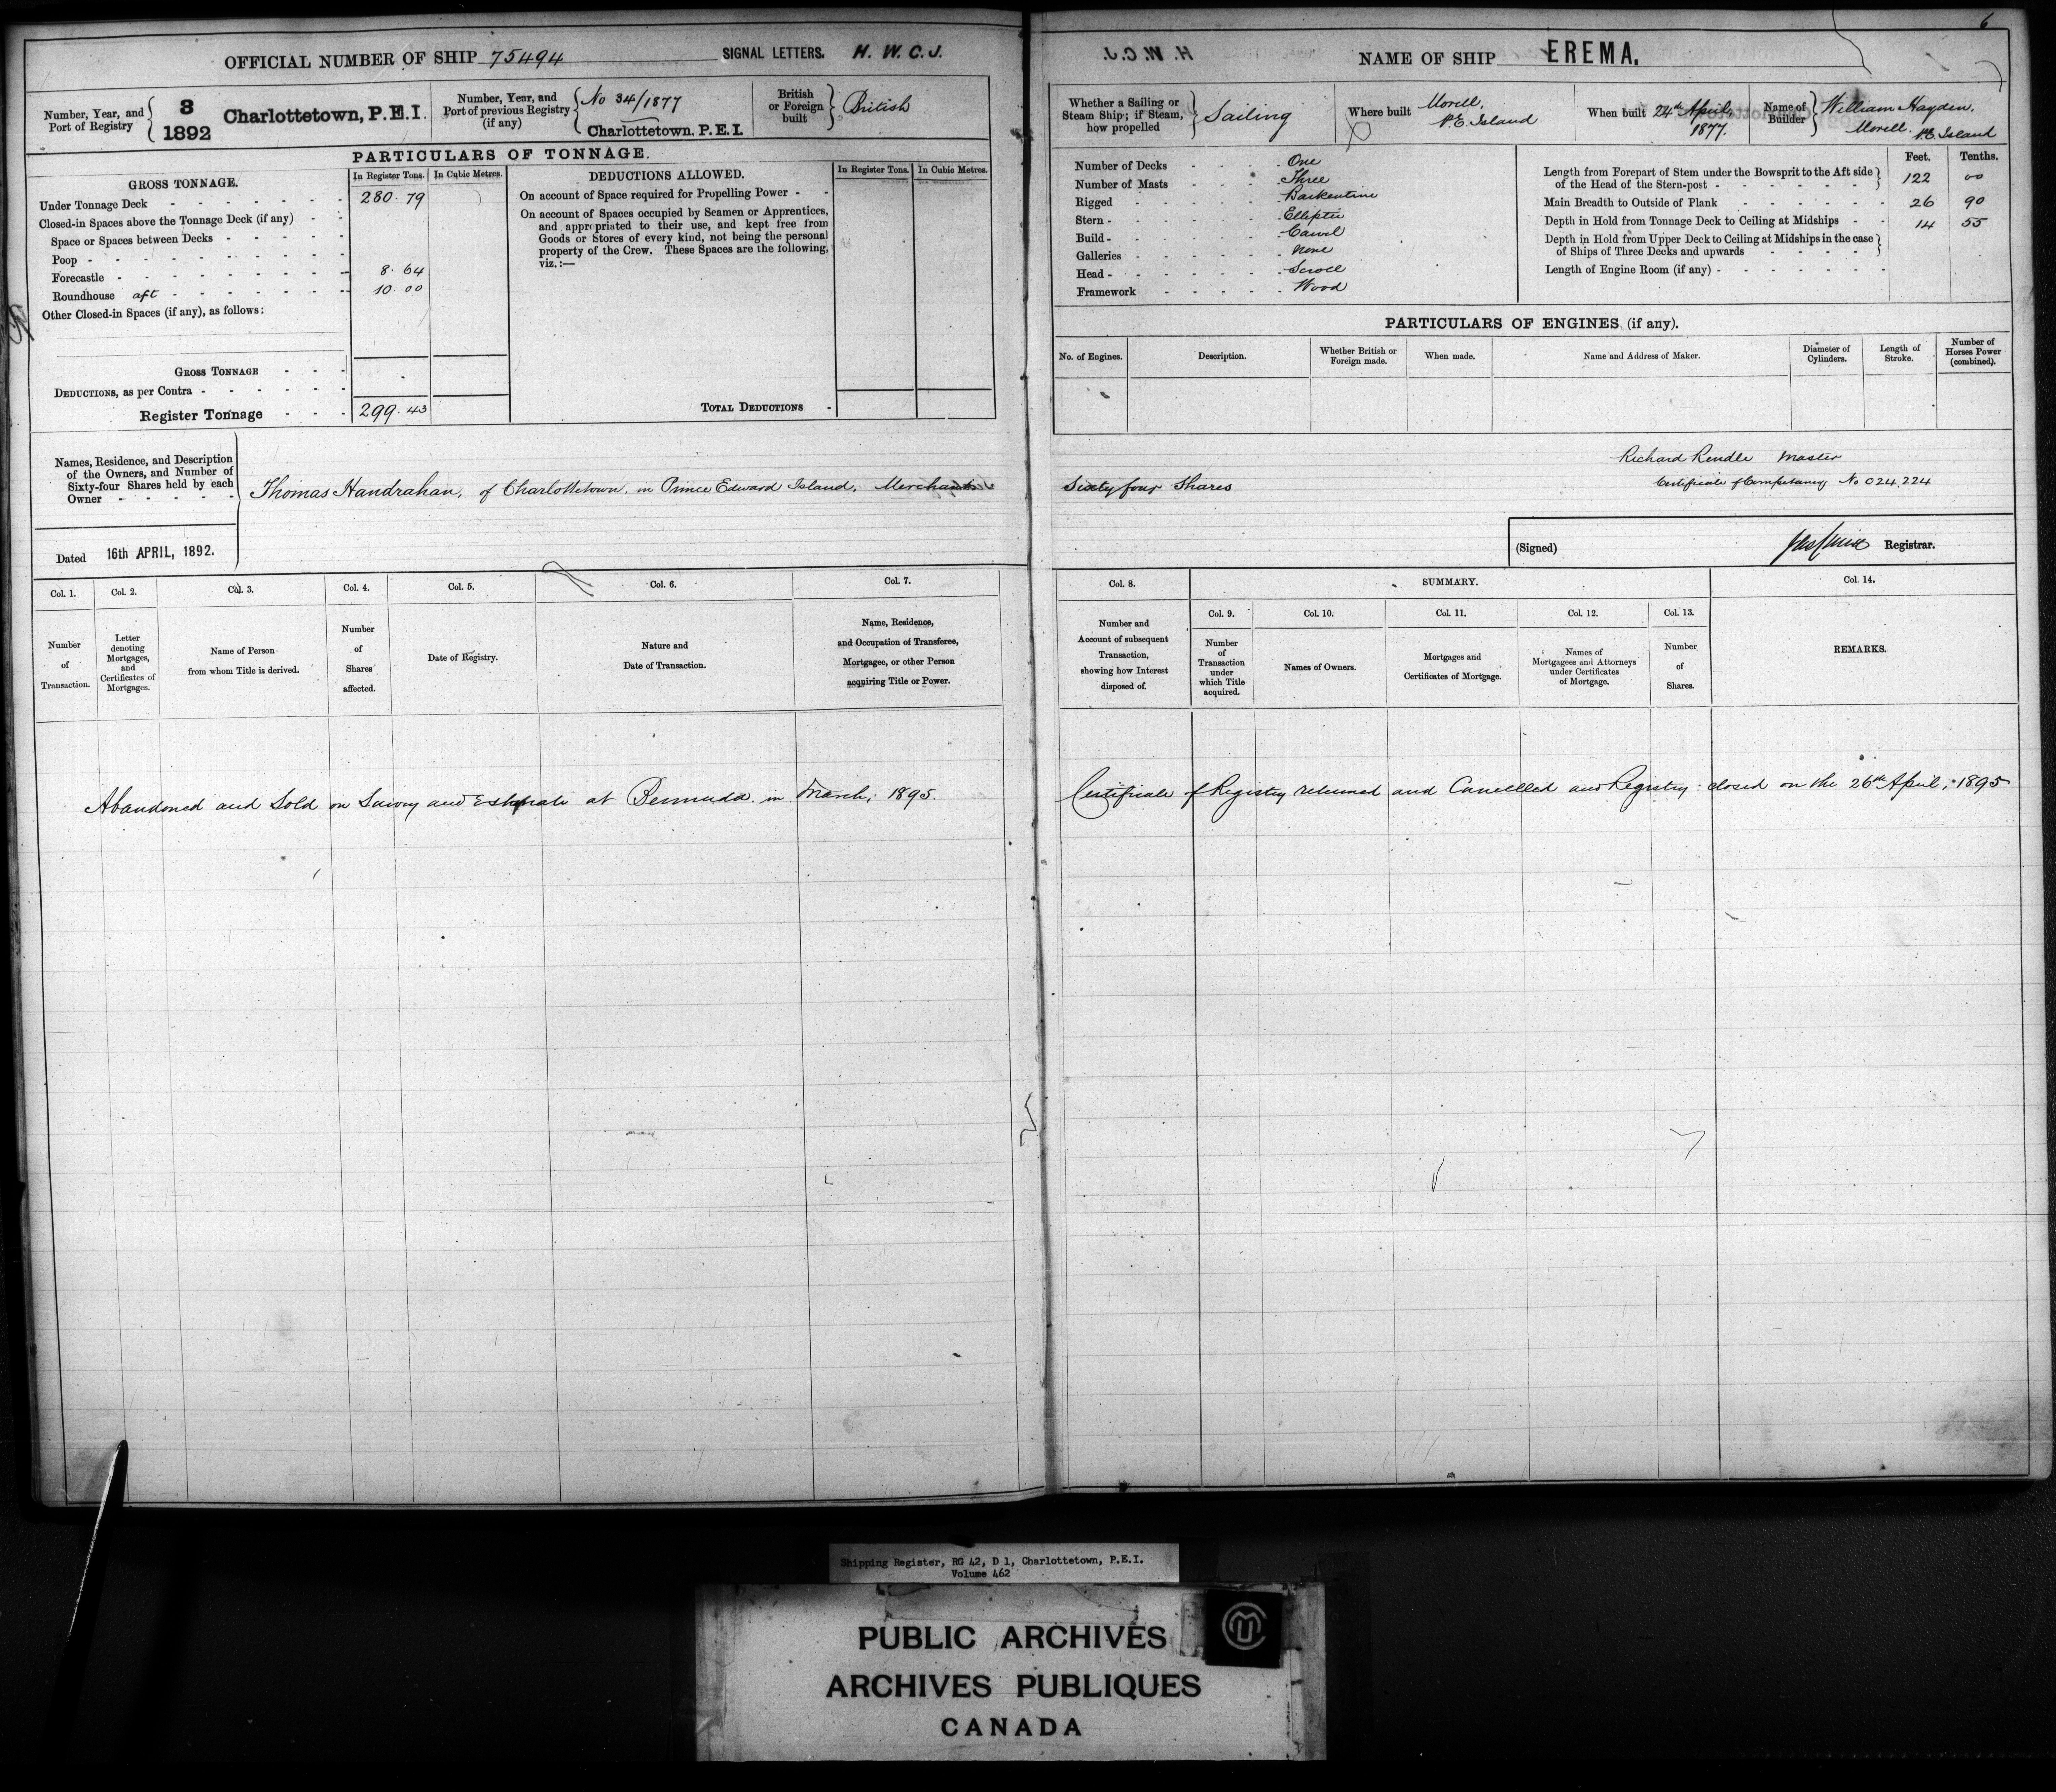 6
OFFICIAL NUMBER OF SHIP 75494 SIGNAL LETTERS. H. W. C. J.
Number, Year, and Port of Registry 3 1892 Charlottetown, P.E.I.
Number, Year, and Port of previous Registry (if any) No 34/1877 Charlottetown. P.E.I.
British or Foreign built British
PARTICULARS OF TONNAGE.
GROSS TONNAGE. In Register Tons. In Cubic Metres.
Under Tonnage Deck 280.79
Closed-in Spaces above the Tonnage Deck (if any)
Space or Spaces between Decks
Poop
Forecastle 8.64
Roundhouse aft 10.00
Other Closed-in Spaces (if any), as follows:
GROSS TONNAGE
DEDUCTIONS, as per Contra
Register Tonnage 299.43
DEDUCTIONS ALLOWED. In Register Tons. In Cubic Metres.
On account of Space required for Propelling Power
On account of Spaces occupied by Seamen or Apprentices,
and appropriated to their use, and kept free from
Goods or Stores of every kind, not being the personal
property of the Crew. These Spaces are the following,
viz.:—
TOTAL DEDUCTIONS
NAME OF SHIP EREMA.
Whether a Sailing or Steam Ship; if Steam, how propelled Sailing
Where built Morell, P.E. Island
When built 24th April, 1877.
Name of Builder William Hayden, Morell. P.E. Island
Number of Decks One
Number of Masts Three
Rigged Barkentine
Stern Elliptic
Build Carvel
Galleries None
Head Scroll
Framework Wood
Feet. Tenths.
Length from Forepart of Stem under the Bowsprit to the Aft side
of the Head of the Stern-post 122 00
Main Breadth to Outside of Plank 26 90
Depth in Hold from Tonnage Deck to Ceiling at Midships 14 55
Depth in Hold from Upper Deck to Ceiling at Midships in the case
of Ships of Three Decks and upwards
Length of Engine Room (if any)
PARTICULARS OF ENGINES (if any).
No. of Engines. Description. Whether British or Foreign made. When made. Name and Address of Maker. Diameter of Cylinders. Length of Stroke. Number of Horses Power (combined).
Names, Residence, and Description
of the Owners, and Number of
Sixty-four Shares held by each
Owner
Thomas Handrahan, of Charlottetown, in Prince Edward Island, Merchant Sixty four Shares
Richard Rendle Master
Certificate of Competency No 024,224
Dated 16th APRIL, 1892.
(Signed) Registrar.
Col. 1. Col. 2. Col. 3. Col. 4. Col. 5. Col. 6. Col. 7.
Number of Transaction.
Letter denoting Mortgages, and Certificates of Mortgages.
Name of Person from whom Title is derived.
Number of Shares affected.
Date of Registry.
Nature and Date of Transaction.
Name, Residence, and Occupation of Transferee, Mortgagee, or other Person acquiring Title or Power.
Col. 8. SUMMARY. Col. 14.
Col. 9. Col. 10. Col. 11. Col. 12. Col. 13.
Number and Account of subsequent Transaction, showing how Interest disposed of.
Number of Transaction under which Title acquired.
Names of Owners.
Mortgages and Certificates of Mortgage.
Names of Mortgagees and Attorneys under Certificates of Mortgage.
Number of Shares.
REMARKS.
Abandoned and Sold on Survey and at Bermuda in March, 1895.
Certificate of Registry returned and Cancelled and Registry closed on the 26th April, 1895
Shipping Register, RG 42, D 1, Charlottetown, P.E.I.
Volume 462
PUBLIC ARCHIVES
ARCHIVES PUBLIQUES
CANADA